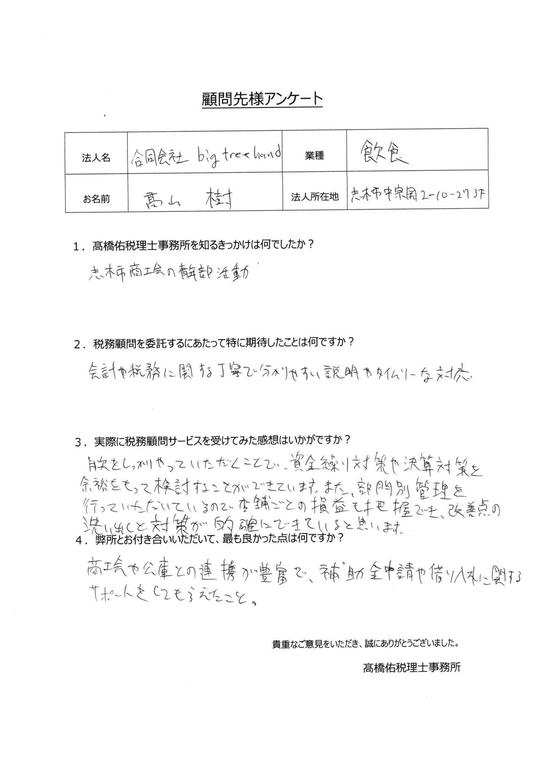 顧問先様アンケート
法人名 合同会社 big tree hand 業種 飲食
お名前 髙山 樹 法人所在地 志木市中宗岡2-10-27 3F
1．髙橋佑税理士事務所を知るきっかけは何でしたか？
志木市商工会の幹部活動
2．税務顧問を委託するにあたって特に期待したことは何ですか？
会計や税務に関する丁寧で分かりやすい説明やタイムリーな対応
3．実際に税務顧問サービスを受けてみた感想はいかがですか？
月次をしっかりやっていただくことで、資金繰り対策や決算対策を
余裕をもって検討することができています。また、部門別管理を
行っていただいているので店舗ごとの損益も把握でき、改善点の
洗い出しと対策が的確にできていると思います。
4．弊所とお付き合いいただいて、最も良かった点は何ですか？
商工会や公庫との連携が豊富で、補助金申請や借り入れに関する
サポートをしてもらえたこと。
貴重なご意見をいただき、誠にありがとうございました。
髙橋佑税理士事務所